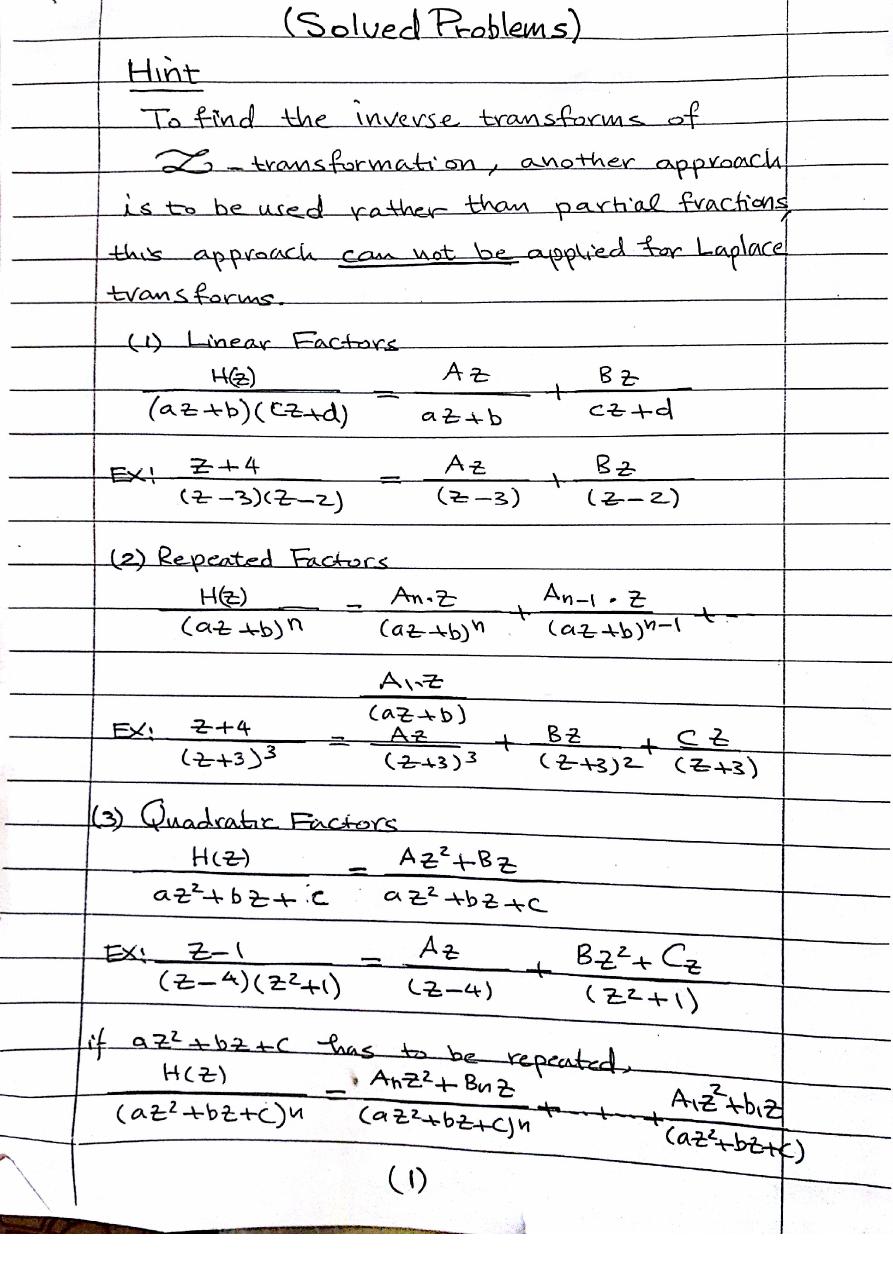 (Solved Problems)
Hint
To find the inverse transforms of
Z-transformation, another approach
is to be used rather than partial fractions,
this approach can not be applied for Laplace
transforms.
(1) Linear Factors
H(z)/((az+b)(cz+d)) = Az/(az+b) + Bz/(cz+d)
EX: (z+4)/((z-3)(z-2)) = Az/(z-3) + Bz/(z-2)
(2) Repeated Factors
H(z)/(az+b)^n = An.z/(az+b)^n + An-1.z/(az+b)^(n-1) + --
A1.z/(az+b)
EX: (z+4)/(z+3)^3 = Az/(z+3)^3 + Bz/(z+3)^2 + Cz/(z+3)
(3) Quadratic Factors
H(z)/(az²+bz+c) = (Az²+Bz)/(az²+bz+c)
EX: (z-1)/((z-4)(z²+1)) = Az/(z-4) + (Bz²+Cz)/(z²+1)
if az²+bz+c has to be repeated,
H(z)/(az²+bz+c)^n = (Anz²+Bnz)/(az²+bz+c)^n + ... + (A1z²+b1z)/(az²+bz+c)
(1)